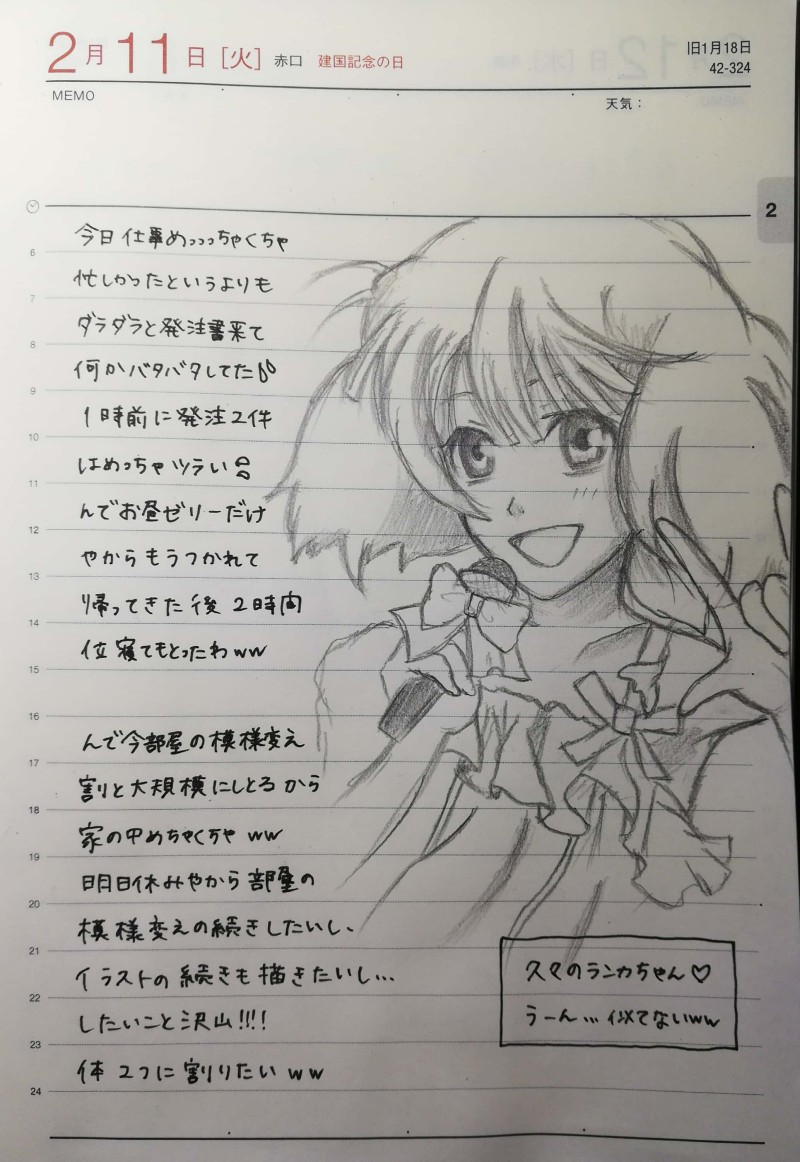 2月11日[火] 赤口 建国記念の日
旧1月18日
42-324
MEMO
天気：
2
6
今日仕事めっっっちゃくちゃ
7
忙しかったというよりも
8
ダラダラと発注書来て
9
何かバタバタしてた
10
1時前に発注2件
11
はめっちゃツラい
12
んでお昼ゼリーだけ
13
やからもうつかれて
14
帰ってきた後2時間
15
位寝てもとったわww
16
17
んで今部屋の模様変え
18
割と大規模にしとるから
19
家の中めちゃくちゃww
20
明日休みやから部屋の
21
模様変えの続きしたいし、
22
イラストの続きも描きたいし...
23
したいこと沢山!!!
24
体2つに割りたいww
久々のランカちゃん♡
うーん...似てないww